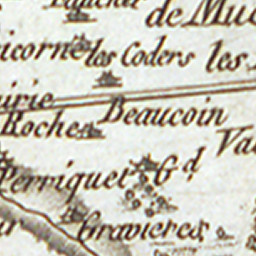 de Mu
icorne
les Coders
les
irie
Beaucoin
Roche
Va
Perriquet
Gd
Gravieres